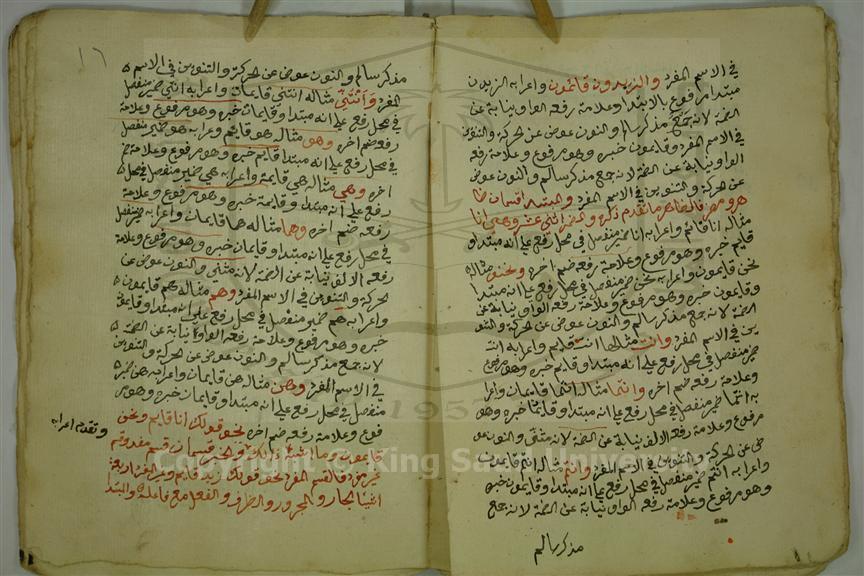 في الاسم المفرد والزيدون قائمون واعرابه الزيدون
مبتدا مرفوع بالابتدا وعلامة رفعه الواو نيابة عن
الضمة لانه جمع مذكر سالم والنون عوض عن الحركة والتنوين
في الاسم المفرد وقايمون خبره وهو مرفوع وعلامة رفعه
الواو نيابة عن الضمة لانه جمع مذكر سالم والنون عوض
عن الحركة والتنوين في الاسم المفرد والمبتدا قسمان ظا
هر ومضمر فالظاهر ما تقدم ذكره والمضمر اثنى عشر وهي انا
مثاله انا قائم واعرابه انا ضمير منفصل في محل رفع على انه مبتدا و
قايم خبره وهو مرفوع وعلامة رفعه ضم اخره ونحن مثاله
نحن قايمون واعرابه نحن ضمير منفصل في محل رفع على انه مبتدا
وقايمون خبره وهو مرفوع وعلامة رفعه الواو نيابة عن
الضمة لانه جمع مذكر سالم والنون عوض عن الحركة والتنو
ين في الاسم المفرد وانت مثاله انت قايم واعرابه انت
ضمير منفصل في محل رفع على انه مبتدا وقايم خبره وهو مرفوع
وعلامة رفعه ضم اخره وانتما مثاله انتما قايمان واعرا
به انتما ضمير منفصل في محل رفع على انه مبتدا وقايمان خبره وهو
مرفوع وعلامة رفعه الالف نيابة عن الضمة لانه مثنى والنون عو
ض عن الحركة والتنوين في الاسم المفرد وانتم مثاله انتم قايمون
واعرابه انتم ضمير منفصل في محل رفع على انه مبتدا وقايمون خبره
وهو مرفوع وعلامة رفعه الواو نيابة عن الضمة لانه جمع
مذكر سالم
١٦
مذكر سالم والنون عوض عن الحركة والتنوين في الاسم
المفرد وانتن مثاله انتن قايمات واعرابه انتن ضمير منفصل
في محل رفع على انه مبتدا وقايمات خبره وهو مرفوع وعلامة
رفعه ضم اخره وهو مثاله هو قايم واعرابه هو ضمير منفصل
في محل رفع على انه مبتدا قايم خبره وهو مرفوع وعلامة ضم
اخره وهي مثاله هي قايمة واعرابه هي ضمير منفصل في محل
رفع على انه مبتدا وقايمة خبره وهو مرفوع وعلامة
رفعه ضم اخره وهما مثاله هما قايمان واعرابه ضمير منفصل
في محل رفع على انه مبتدا وقايمان خبره وهو مرفوع وعلامة
رفعه الالف نيابة عن الضمة لانه مثنى والنون عوض عن
الحركة والتنوين في الاسم المفرد وهم مثاله هم قايمون
واعرابه هم ضمير منفصل في محل رفع على انه مبتدا وقايمون
خبره وهو مرفوع وعلامة رفعه الواو نيابة عن الضمة
لانه جمع مذكر سالم والنون عوض عن الحركة والتنوين
في الاسم المفرد وهن مثاله هن قايمات واعرابه هن ضمير
منفصل في محل رفع على انه مبتدا وقايمات خبره وهو مر
فوع وعلامة رفعه ضم اخره نحو قولك انا قايم ونحن
وتقدم اعرابه
قايمون وما اشبه ذلك والخبر قسمان قسم مفرد وقسم
غير مفرد فالقسم المفرد نحو قولك زيد قايم وغير المفرد اربعة
اشيا الجار والمجرور والظرف والفعل مع فاعله والمبتدا
1957
Copyright © King Saud University